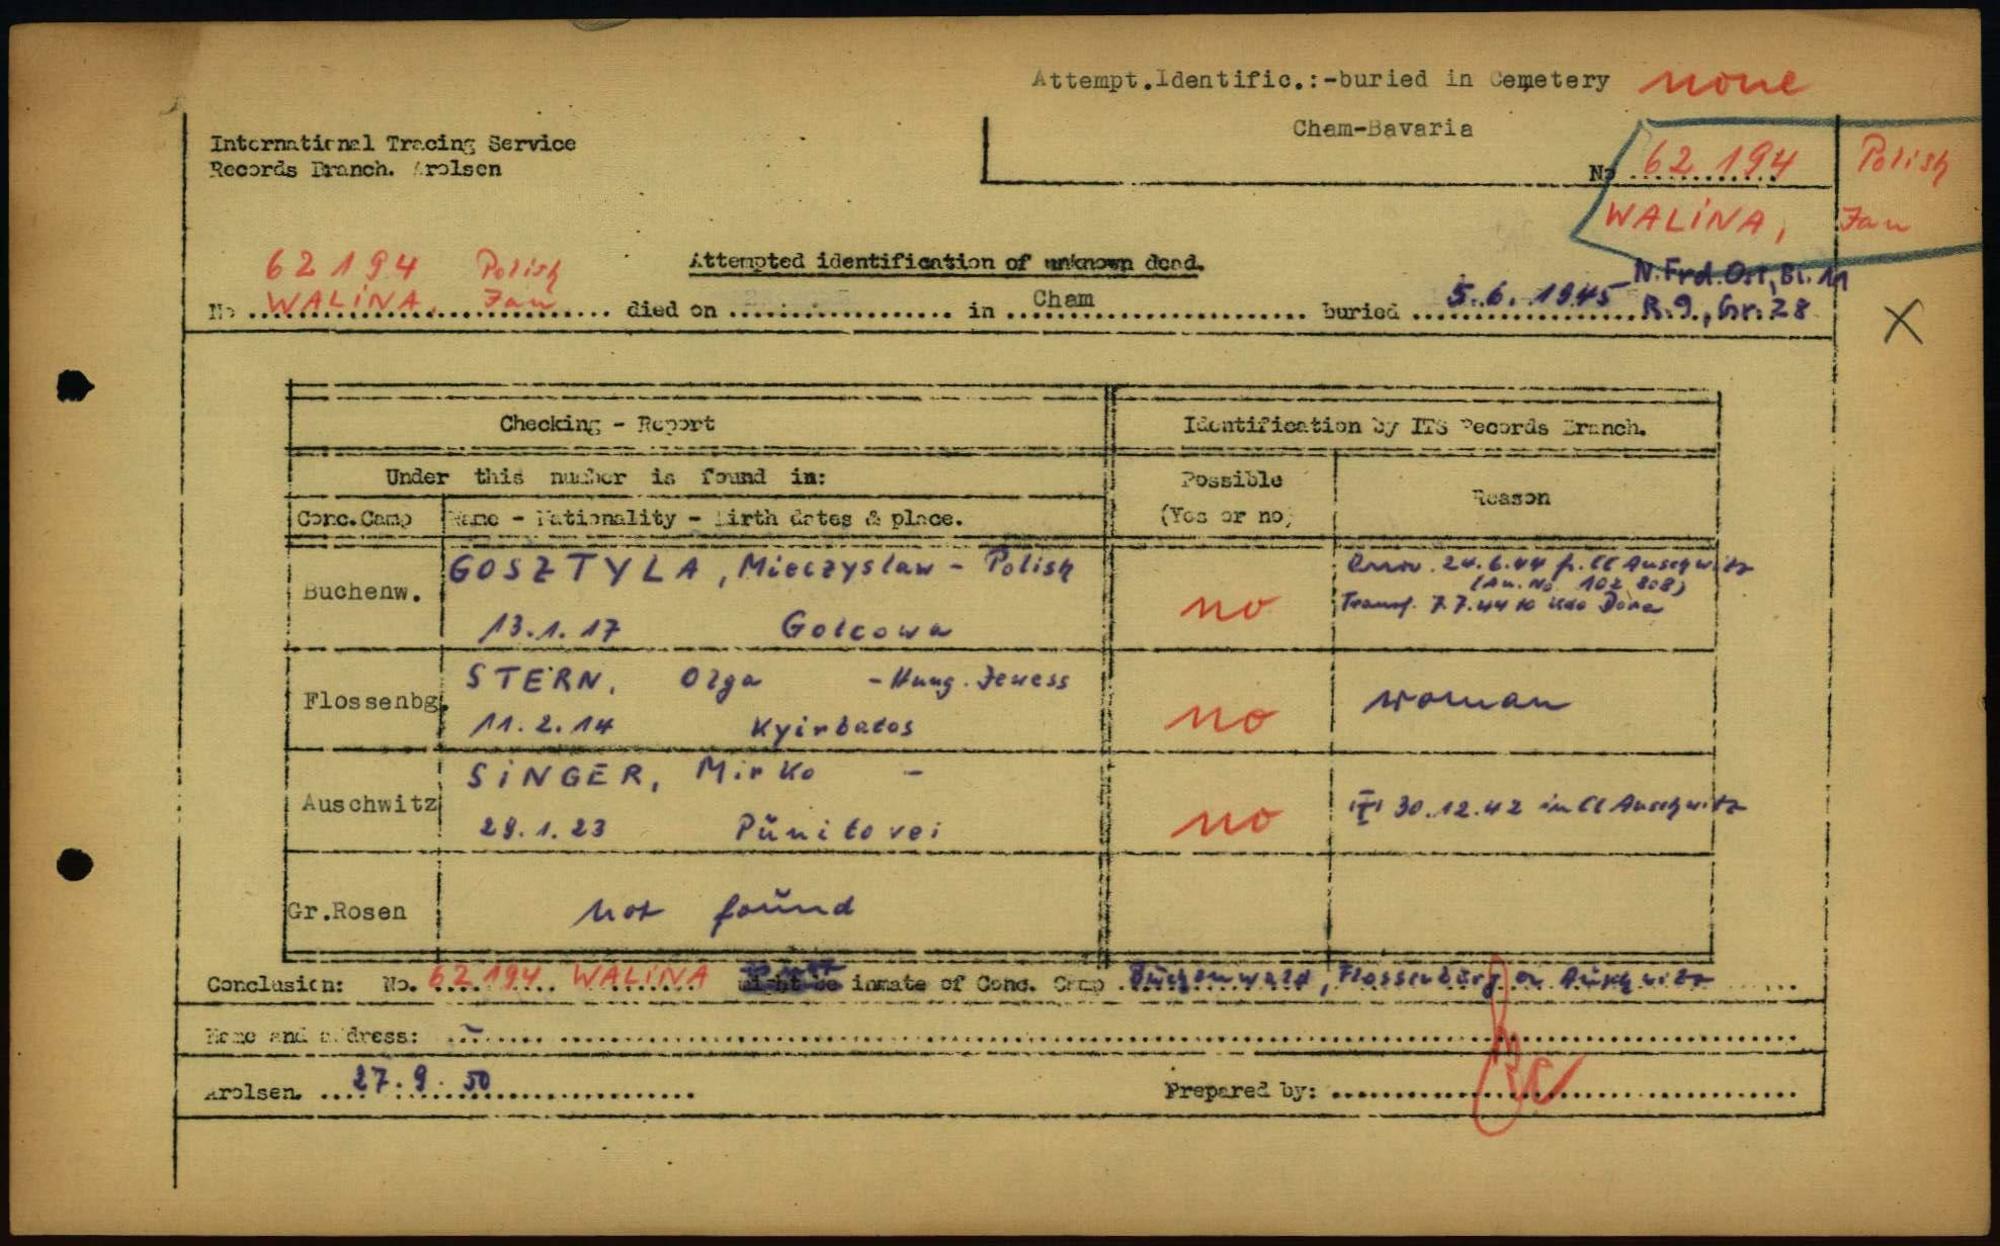 Attempt.Identific.:-buried in Cemetery none
Cham-Bavaria
International Tracing Service
Records Branch. Arolsen
No 62 194 Polish
WALINA, Jan
62 194 Polish
Attempted identification of unknown dead.
N.Frd.Ost, Bl.11
No WALINA, Jan died on in Cham buried 5.6.1945 R.9., Gr.28
X
Checking - Report
Identification by ITS Records Branch.
Under this number is found in:
Possible
(Yes or no)
Reason
Conc.Camp
Name - Nationality - Birth dates & place.
Buchenw.
GOSZTYLA, Mieczyslaw - Polish
13.1.17 Golcowa
no
24.6.44 fr. CC Auschwitz
(Au. No. 102 808)
Transf. 7.7.44 to Kdo Dora
Flossenbg.
STERN, Olga - Hung. Jewess
11.2.14 Kyirbatos
no
woman
Auschwitz
SINGER, Mirko -
29.1.23
no
30.12.42 in CC Auschwitz
Gr.Rosen
not found
Conclusion: No. 62 194 WALINA inmate of Conc. Camp Buchenwald, Flossenbürg or Auschwitz
Name and address: -
Arolsen. 27.9.50
Prepared by: